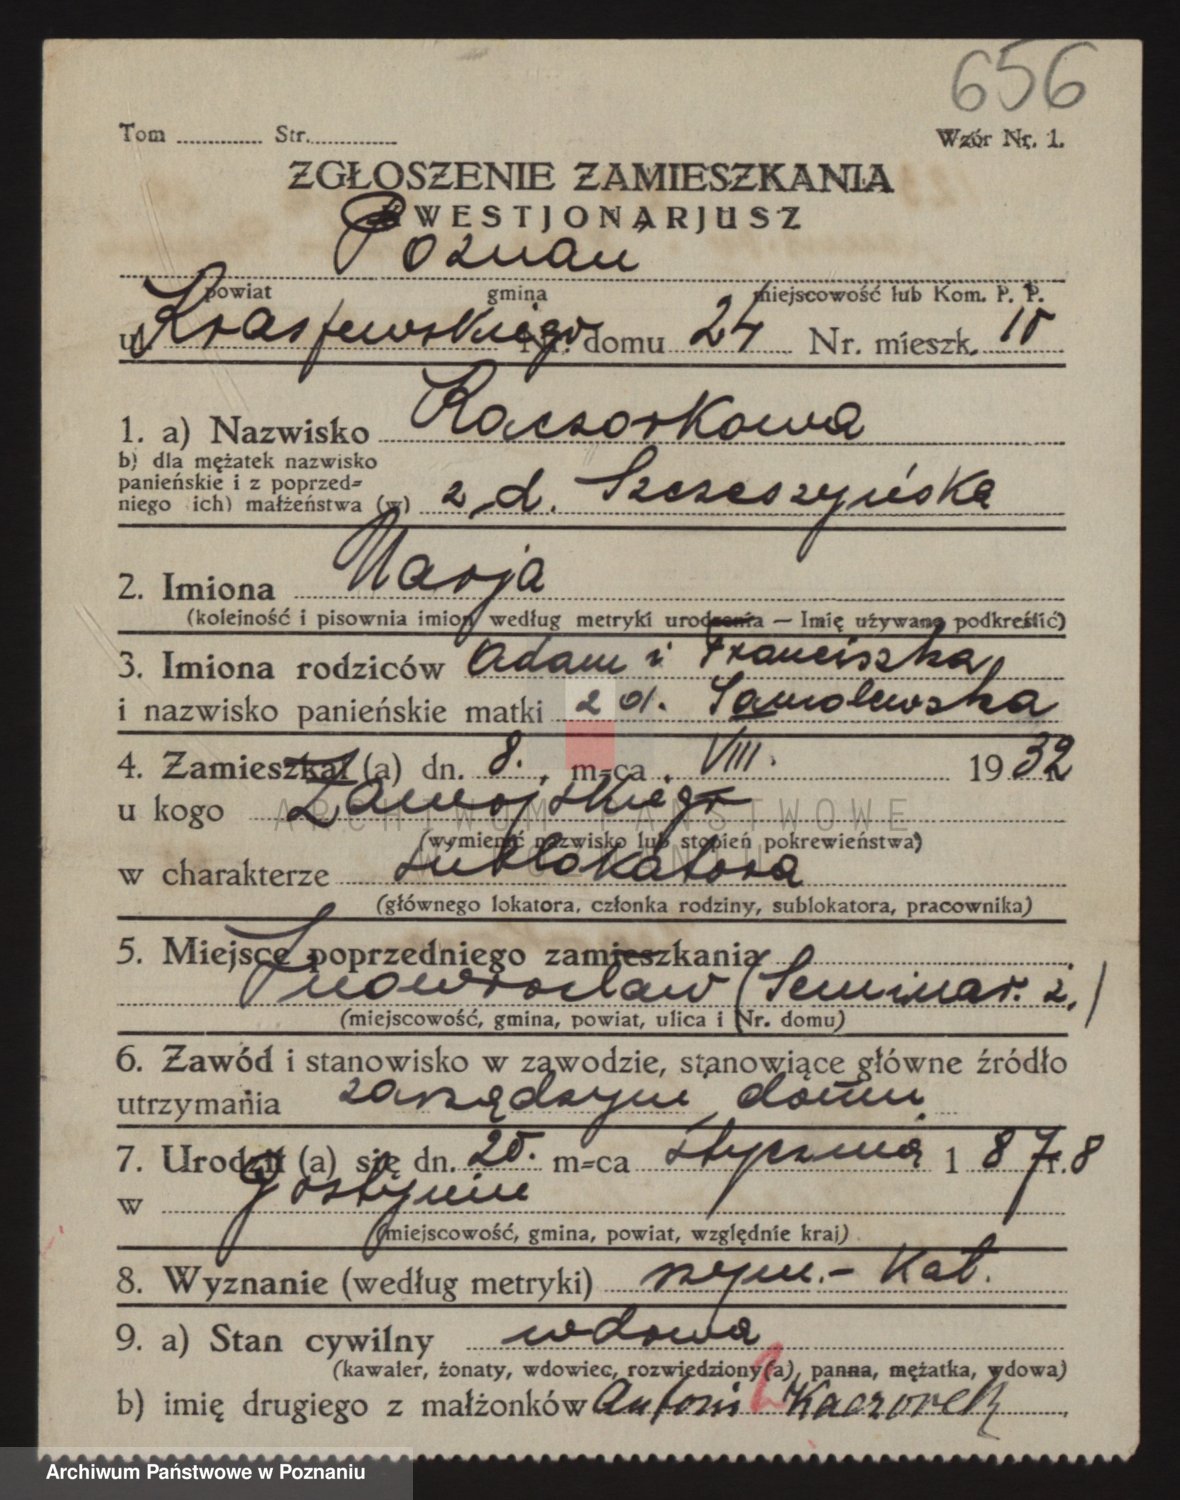 656
Tom ............ Str. ............ Wzór Nr. 1.
ZGŁOSZENIE ZAMIESZKANIA
KWESTJONARJUSZ
Poznań
powiat gmina miejscowość lub Kom. P. P.
ul. Kraszewskiego Nr. domu 24 Nr. mieszk. 15
1. a) Nazwisko Kaczorkowa
b) dla mężatek nazwisko
panieńskie i z poprzed-
niego (ich) małżeństwa (w) z d. Szczeszyńska
2. Imiona Marja
(kolejność i pisownia imion według metryki urodzenia — Imię używane podkreślić)
3. Imiona rodziców Adam i Franciszka
i nazwisko panieńskie matki z d. Samolewska
4. Zamieszkał (a) dn. 8. m-ca VIII. 1932
u kogo Zamojskiego
(wymienić nazwisko lub stopień pokrewieństwa)
w charakterze sublokatora
(głównego lokatora, członka rodziny, sublokatora, pracownika)
5. Miejsce poprzedniego zamieszkania
Inowrocław (Seminar. ż.)
(miejscowość, gmina, powiat, ulica i Nr. domu)
6. Zawód i stanowisko w zawodzie, stanowiące główne źródło
utrzymania zarządzyni domu
7. Urodził (a) się dn. 25. m-ca stycznia 1878 r.
w Gostyniu
(miejscowość, gmina, powiat, względnie kraj)
8. Wyznanie (według metryki) rzym.- kat.
9. a) Stan cywilny wdowa
(kawaler, żonaty, wdowiec, rozwiedziony(a), panna, mężatka, wdowa)
b) imię drugiego z małżonków Antoni Kaczorek
ARCHIWUM PAŃSTWOWE
W POZNANIU
Archiwum Państwowe w Poznaniu